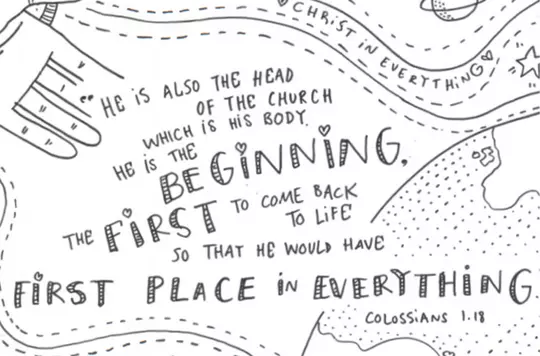 ♡ CHRIST IN EVERYTHING ♡
"HE IS ALSO THE HEAD
OF THE CHURCH
WHICH IS HIS BODY.
HE IS THE
BEGINNING,
THE FIRST TO COME BACK
TO LIFE
SO THAT HE WOULD HAVE
FIRST PLACE in EVERYTHING.
COLOSSIANS 1.18